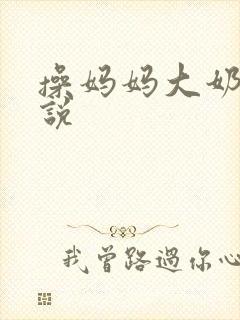 操妈妈大奶
說
我曾路過你心